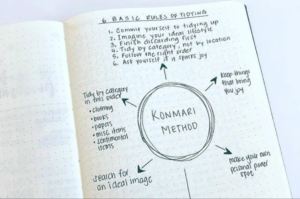 6 BASIC RULES OF TIDYING
1. Commit yourself to tidying up
2. Imagine your ideal lifestyle
3. Finish discarding first
4. Tidy by category, not by location
5. Follow the right order
6. Ask yourself if it sparks joy
Tidy by category
in this order:
• clothing
• books
• papers
• misc items
• sentimental
items
KONMARI
METHOD
Keep things
that bring
you joy
Search for
an ideal image
make your own
personal power
spot